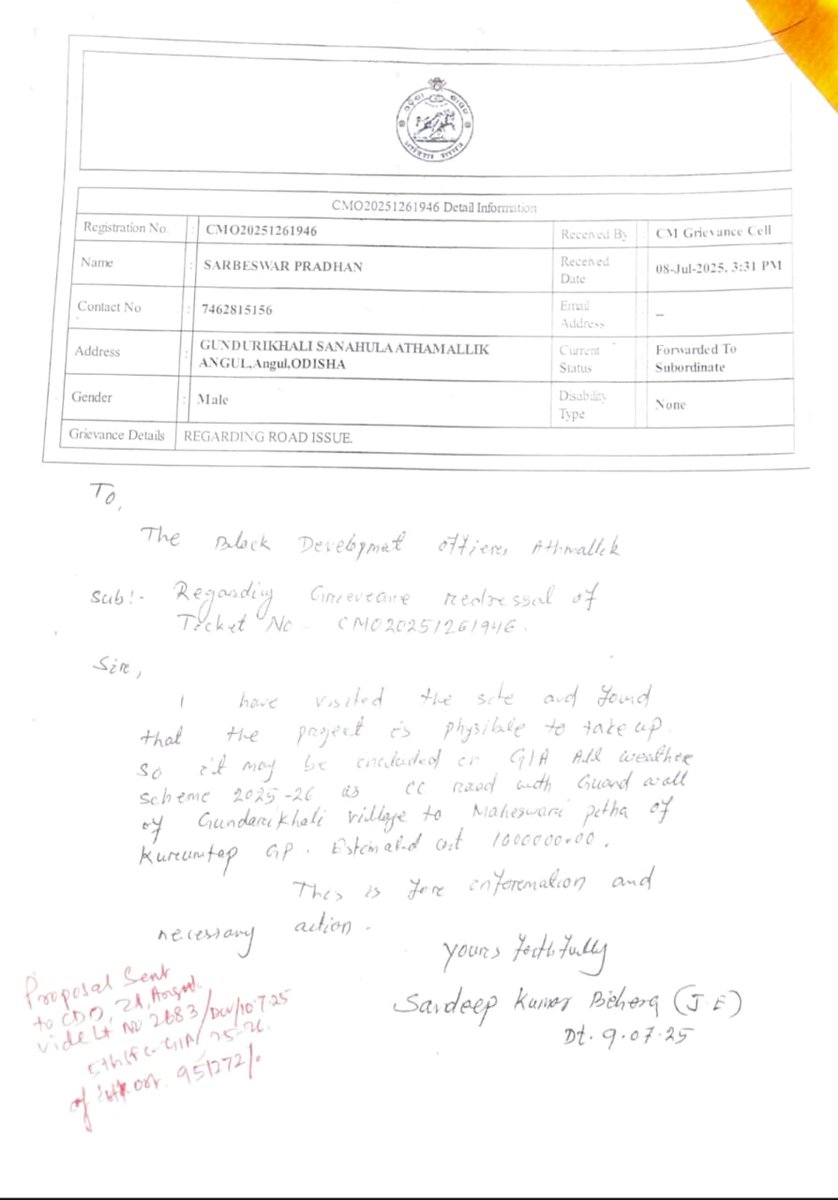 CMO20251261946 Detail Information
Registration No. : CMO20251261946 Received By CM Grievance Cell
Name : SARBESWAR PRADHAN Received Date 08-Jul-2025, 3:31 PM
Contact No : 7462815156 Email Address --
Address : GUNDURIKHALI SANAHULA ATHAMALLIK ANGUL,Angul,ODISHA Current Status Forwarded To Subordinate
Gender : Male Disability Type None
Grievance Details REGARDING ROAD ISSUE.
To,
The Block Developmet officer, Athmallik
Sub:- Regarding Grieveane redressal of
Ticket No - CMO20251261946.
Sire,
I have visited the site and found
that the project is physible to take up.
so it may be encluded in GIA All weather
scheme 2025-26 as CC road with Guard wall
of Gundarikhali village to Maheswari pitha of
Kurumtap GP. Estemated cost 1000000.00.
This is fore enforemation and
necessary action.
yours faithfully
Sandeep Kumar Behera (J.E)
Dt. 9.07.25
Proposal Sent
to CDO, ZP, Angul
vide Lt No 2683/Dev/10.7.25
5th SFC GIA/25-26
of 951272/.